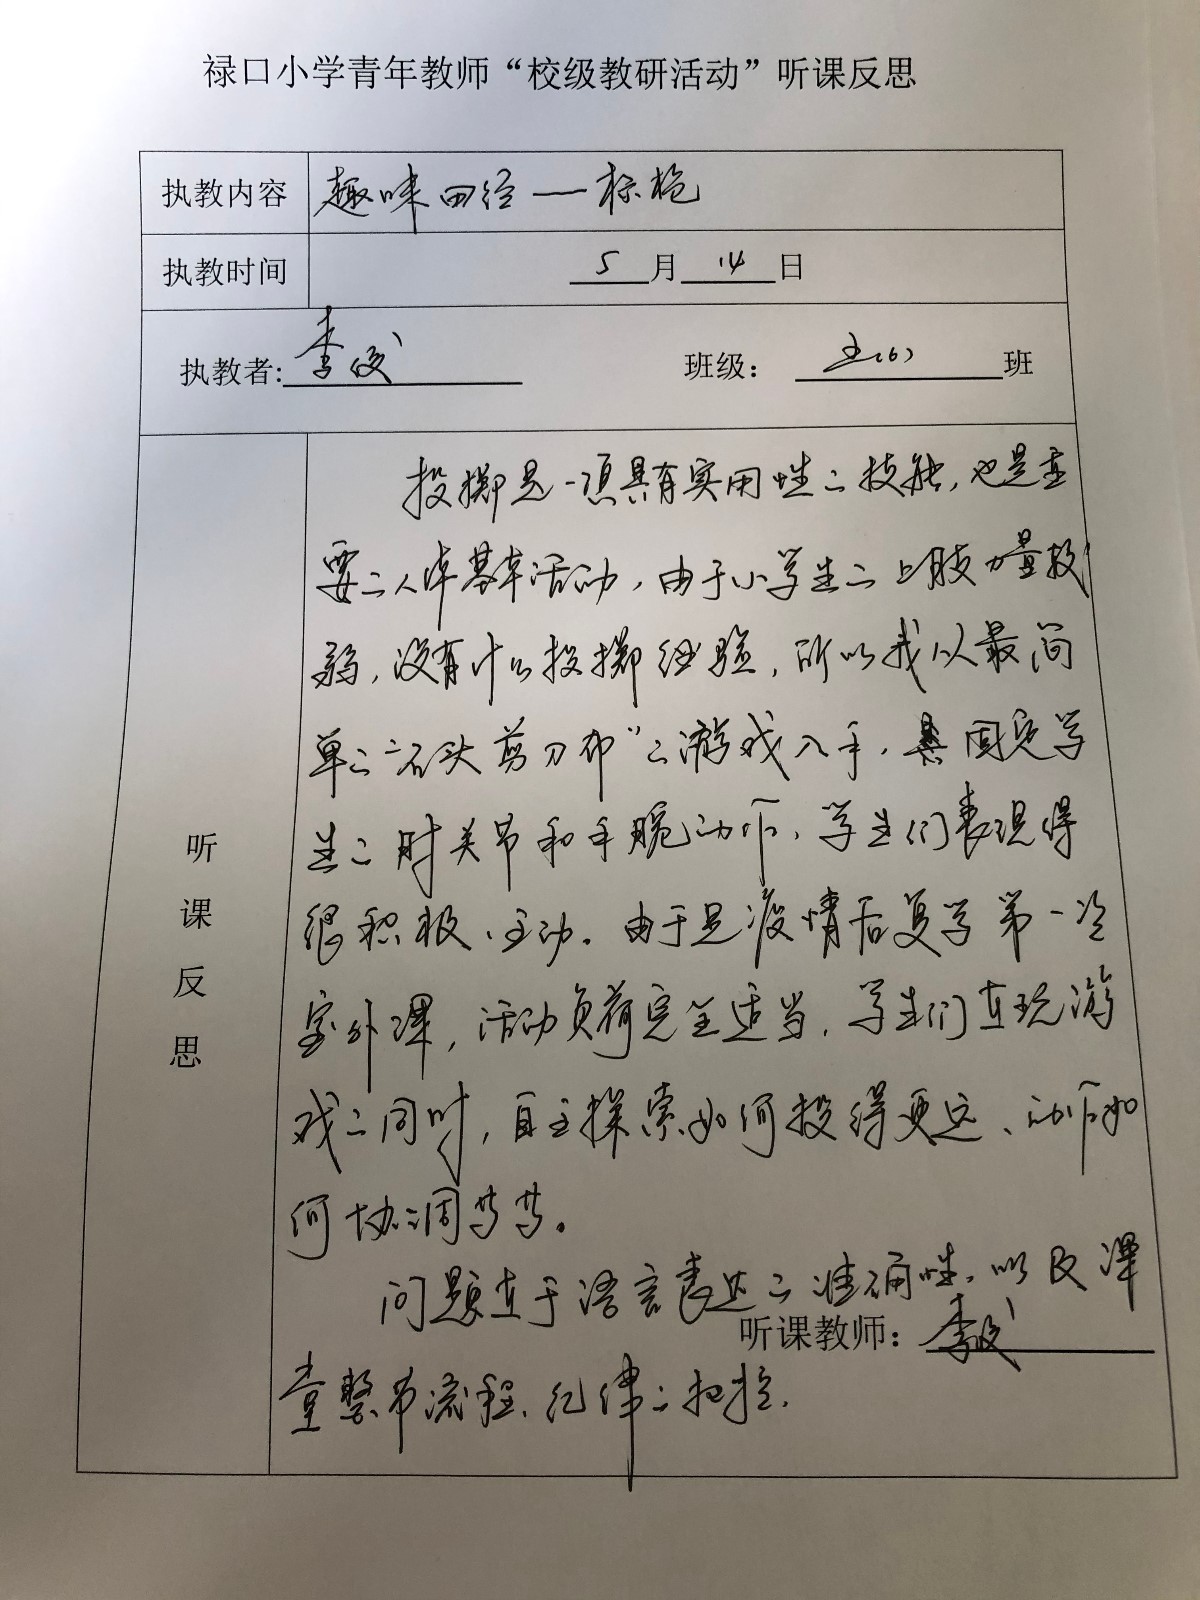 禄口小学青年教师“校级教研活动”听课反思
执教内容 趣味田径——标枪
执教时间 5月14日
执教者: 李 班级： (6) 班
听课反思
投掷是一项具有实用性的技能，也是重
要的人体基本活动，由于小学生的上肢力量较
弱，没有什么投掷经验，所以我从最简
单的“石头剪刀布”的游戏入手，固定学
生的肘关节和手腕动作，学生们表现得
很积极、主动。由于是疫情后复学第一次
室外课，活动负荷完全适当，学生们在玩游
戏的同时，自主探索如何投得更远、动作如
何协调等等。
问题在于语言表达的准确性，以及课
听课教师： 李
堂整节流程、纪律的把控.